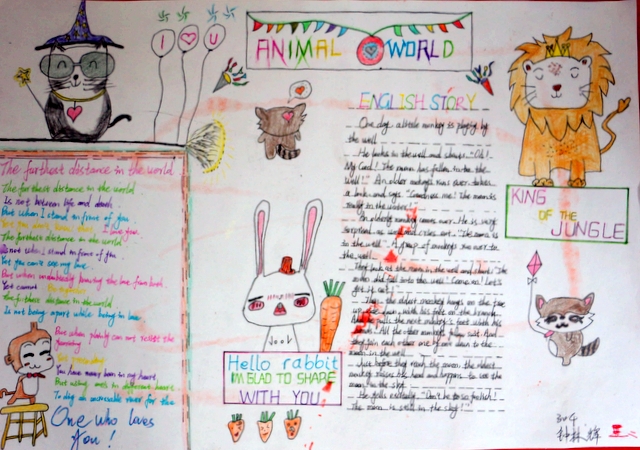 I ♥ U
ANIMAL WORLD
The furthest distance in the world
The furthest distance in the world
Is not between life and death
But when I stand in front of you
Yet you don't
The furthest distance in the world
Is not when I stand in front of you
Yet you can't see my love
But when undoubtedly knowing the love from both
Yet cannot
The furthest distance in the world
Is not being apart while being in love
But when plainly can not resist the
yearning
You have never been in my heart
But using one's in different heart
To dig an river for the
One who loves
You!
Hello rabbit
I'M GLAD TO SHARE
WITH YOU
ENGLISH STORY
One day, a little monkey is playing by
the well.
He looks in the well and shouts, "Oh!
My God! The moon has fallen into the
well!" An older monkey runs over, takes
a look, and says, "Goodness me! The moon is
really in the water!"
An elderly monkey comes over. He is very
surprised as well and cries out, "The moon is
in the well." A group of monkeys run over to
the well.
They look at the moon in the well and shout, "The
moon did fall into the well! Come on! Let's
get it out!"
Then, the oldest monkey hangs on the tree
up with his feet on the branch
the next monkey's feet with his
All the other monkeys follow suit. And
they join each other one by one down to the
moon in the well.
Just before they reach the moon, the oldest
monkey raises his head and happens to see the
moon in the sky.
He yells excitedly, "Don't be so foolish!
The moon is still in the sky!"
KING
OF THE
JUNGLE
钟林辉